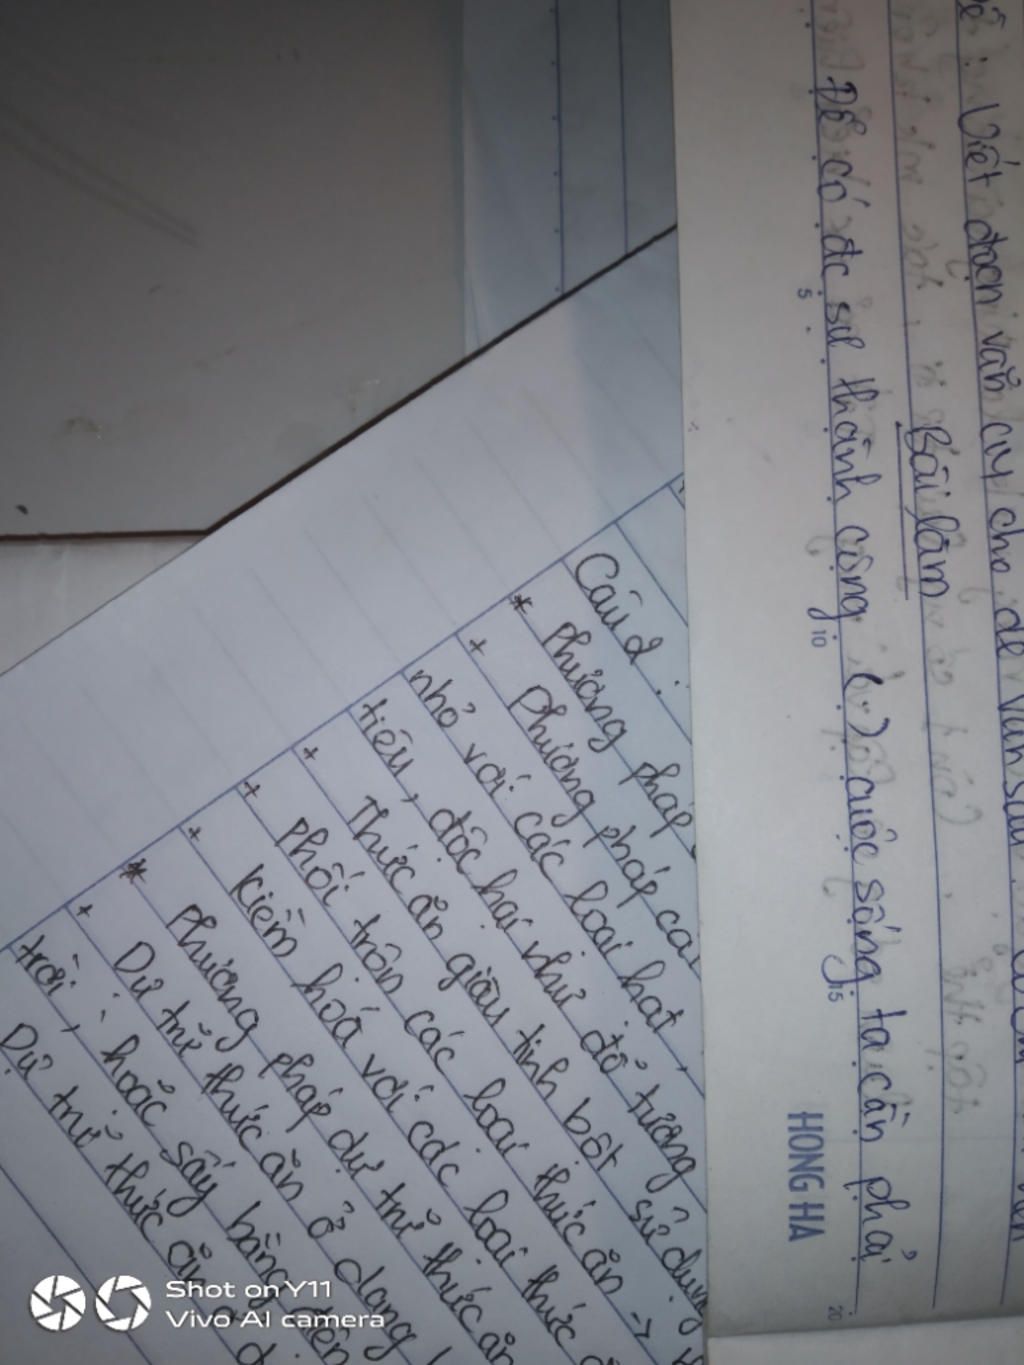 Viết đoạn văn quy cho
Bài làm
Để có đc sự thành công cuộc sống ta cần phải
HONG HA
5
10
15
20
Câu 2:
* Phương pháp
+ Phương pháp
nhỏ với các loại hạt,
tiêu, độc hại như đỗ tương
+ Thức ăn giàu tinh bột sử dụng
+ Phối trộn các loại thức ăn →
+ Kiềm hoá với các loại thức
* Phương pháp dự trữ thức ăn
+ Dự trữ thức ăn ở dạng
trời, hoặc sấy bằng điện
Dự trữ thức ăn
Shot on Y11
Vivo AI camera